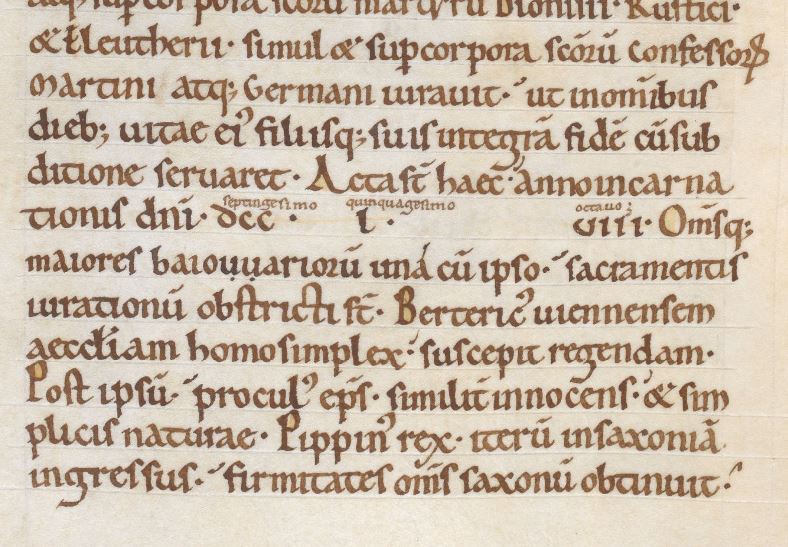 atq; sup corpora scōrū martyrū Dionisii· Rustici·
& Eleutherii· simul & sup corpora scōrū confessorꝝ
Martini atq; Germani iurauit·ʼ ut in om̄ibus
dieb; uitae eiꝰ filiisq; suis integrā fidē cū sub
ditione seruaret· Acta st̄ haec̄·ʼ anno incarna
septingesimo quinquagesimo octauo;
tionis dn̄i· dcc· l· uiii· Om̄sq;
maiores baiouuariorū unā cū ipso·ʼ sacramentis
iurationū obstricti st̄· Bertericꝰ uiennensem
aeccl̄iam homo simplex·ʼ suscepit regendam·
Post ipsū·ʼ proculꝰ ep̄s· similit̄ innocens· & sim
plicis naturae· Pippinꝰ rex· iterū in saxoniā
ingressus·ʼ firmitates om̄s saxonū obtinuit·ʼ